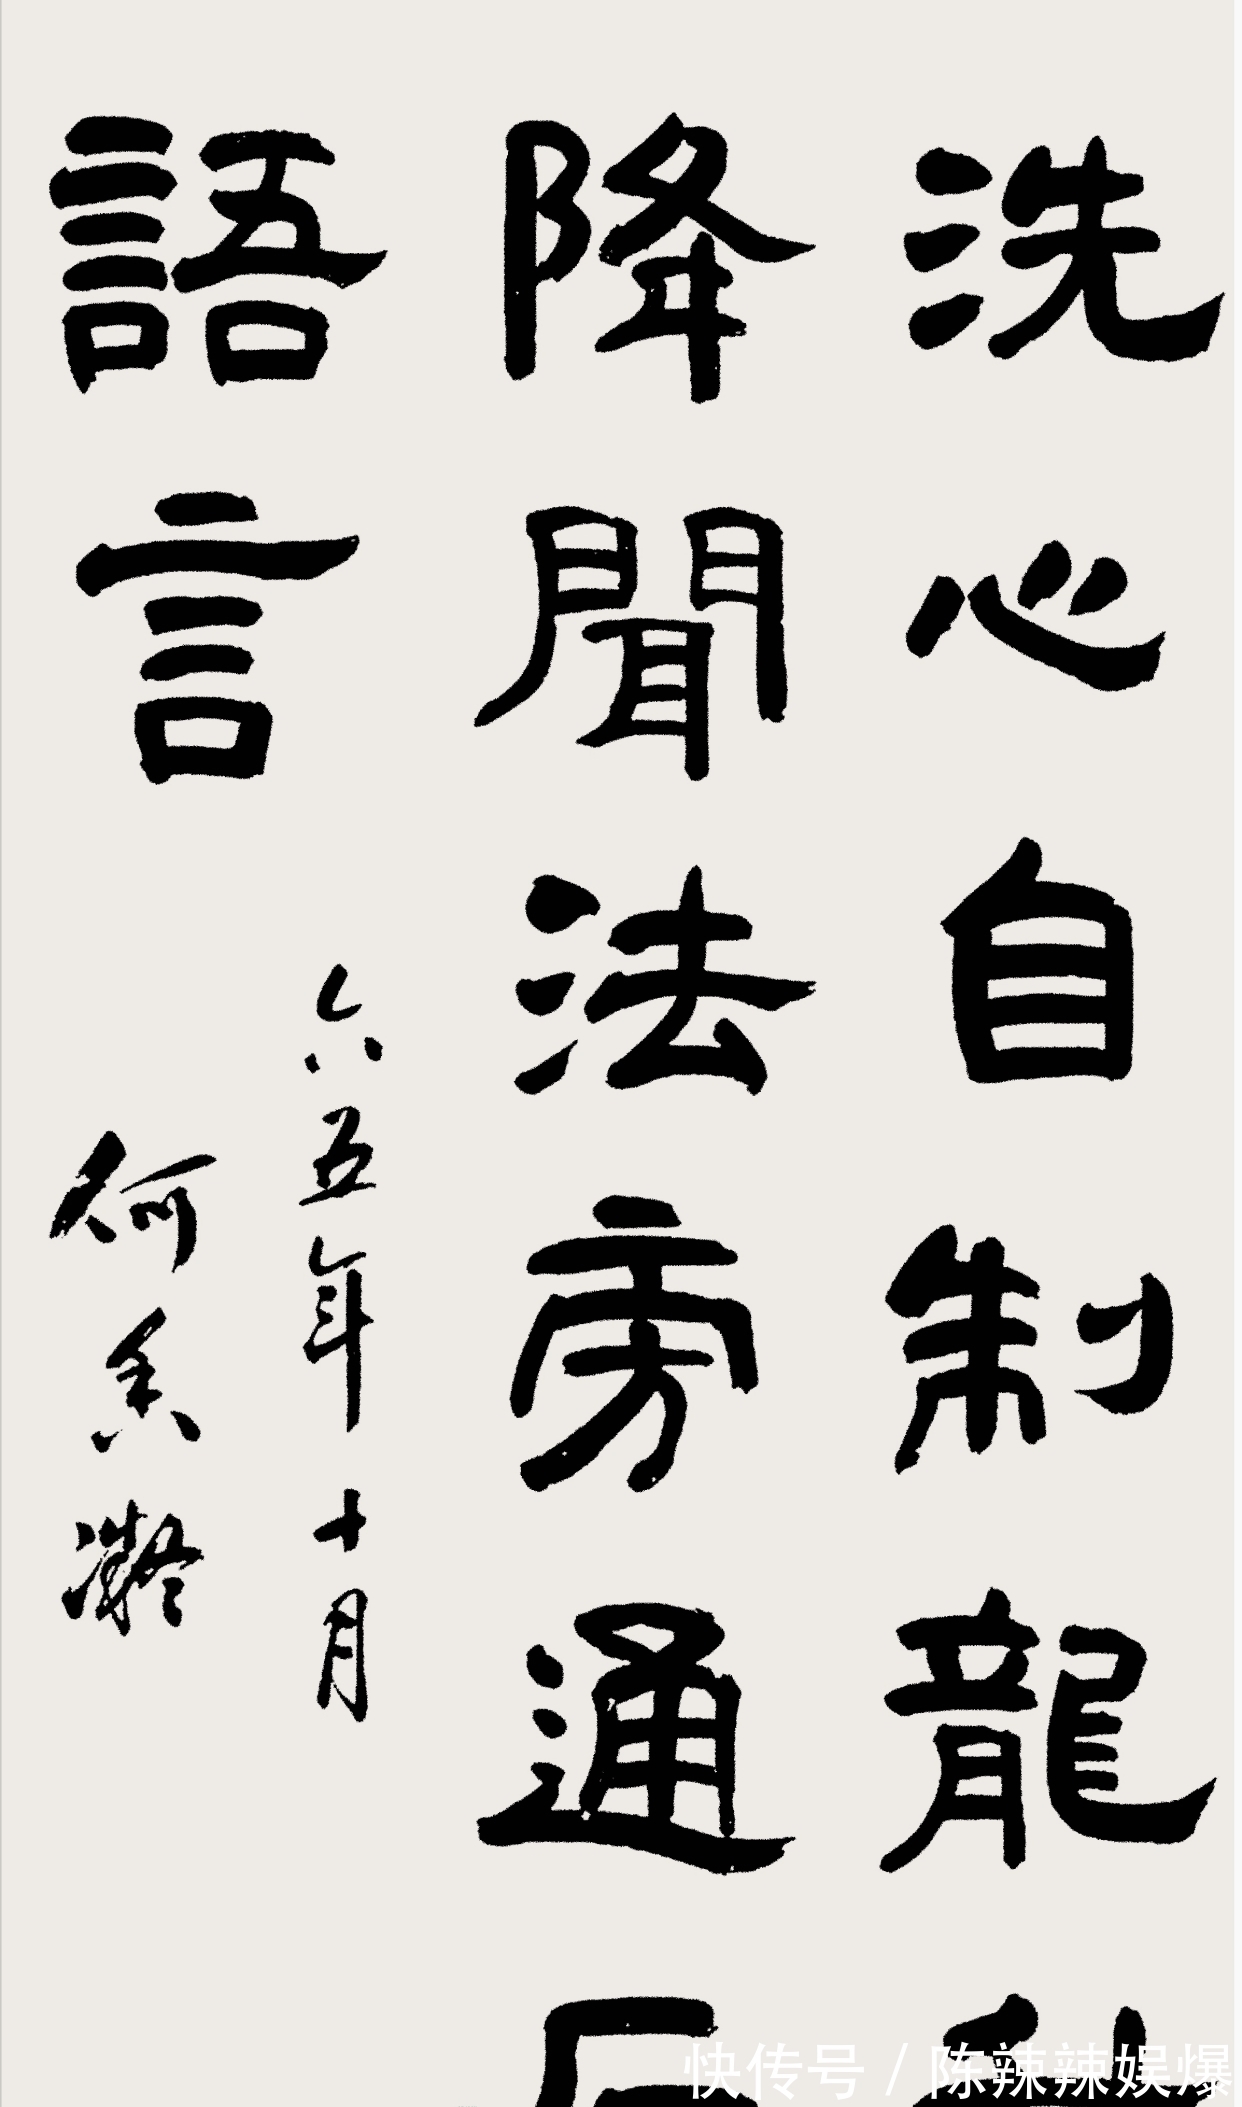 洗心自制龍
降聞法旁通
語言
六五年十月
何香凝
快传号 / 陈辣辣娱爆